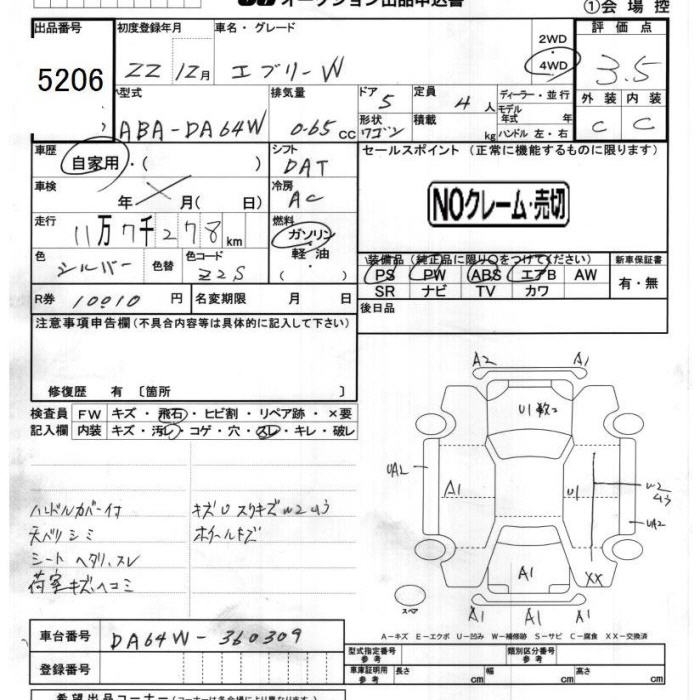 オークション出品申込書
①会場控
出品番号
5206
初度登録年月
22 12月
車名・グレード
エブリーW
2WD
4WD
評価点
3.5
外装 内装
C C
型式
ABA-DA64W
排気量
0.65 cc
ドア 5
形状 ワゴン
定員 4 人
積載 kg
ディーラー・並行
モデル年式 年
ハンドル 左・右
車歴 自家用・( )
シフト DAT
セールスポイント (正常に機能するものに限ります)
NOクレーム・売切
車検 年 月( 日)
冷房 AC
走行 11万7千278km
燃料 ガソリン
軽油
・( )
色 シルバー 色替 色コード Z2S
装備品 (純正品に限り○をつけてください) 新車保証書
PS PW ABS エアB AW 有・無
SR ナビ TV カワ
R券 10010 円 名変期限 月 日
後日品
注意事項申告欄 (不具合内容等は具体的に記入して下さい)
修復歴 有 〔箇所 〕
検査員記入欄 FW キズ・飛石・ヒビ割・リペア跡・×要
内装 キズ・汚レ・コゲ・穴・スレ・キレ・破レ
ハンドルカバー付 キズU スリキズW2 U3
天ベリシミ ホイールキズ
シート ヘタリ、スレ
荷室キズ、ヘコミ
A2 A1
U1数コ
UA2 A1 U1 W2 U3 UA2
A1 XX
A1 A1 A1
スペア
A-キズ E-エクボ U-凹み W-補修跡 S-サビ C-腐食 XX-交換済
車台番号 DA64W-360309
登録番号
型式指定番号 参考 類別区分番号 参考
車庫証明用 参考 長さ cm 幅 cm 高さ cm
希望出品コーナー